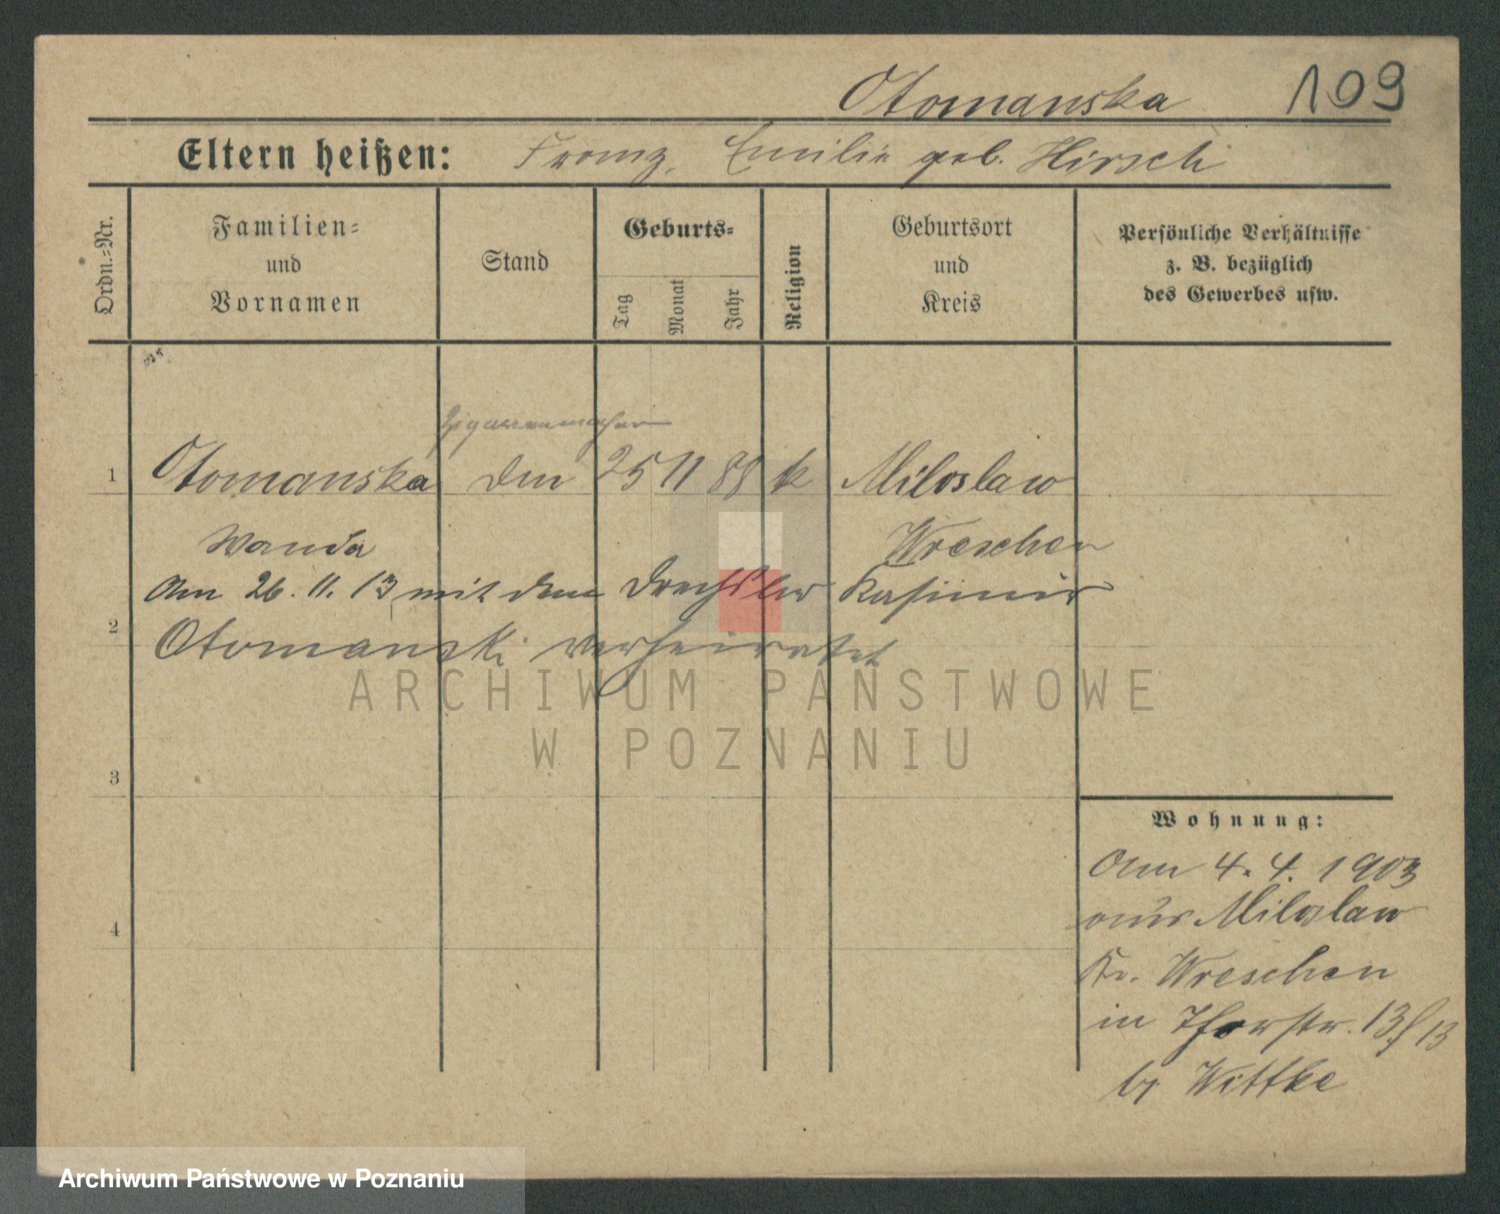 Otomanska 109
Eltern heißen: Franz, Emilie geb. Hirsch
Ordn.=Nr.
Familien=
und
Vornamen
Stand
Geburts=
Tag
Monat
Jahr
Religion
Geburtsort
und
Kreis
Persönliche Verhältnisse
z. B. bezüglich
des Gewerbes usw.
Zigarrenmacher
1 Otomanska 25 11 88 k Miloslaw
Wanda Wreschen
2 Am 26. 11. 13 mit dem Drechsler Kasimir
Otomanski verheiratet
ARCHIWUM PAŃSTWOWE
W POZNANIU
3
4
Wohnung:
Am 4. 4. 1903
aus Miloslaw
Kr. Wreschen
in Thorstr. 13
Wittke
Archiwum Państwowe w Poznaniu